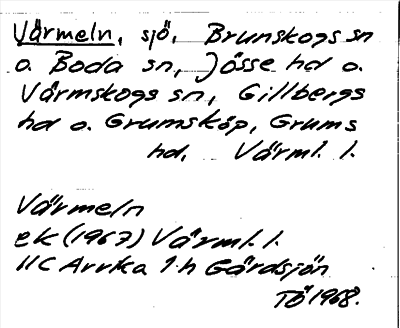 Värmeln, sjö, Brunskogs sn
o. Boda sn, Jösse hd o.
Värmskogs sn, Gillbergs
hd o. Grumsköp, Grums
hd, Värml. l.
Värmeln
ek (1967) Värml. l.
11C Arvika 1h Gårdsjön
TÖ 1968.